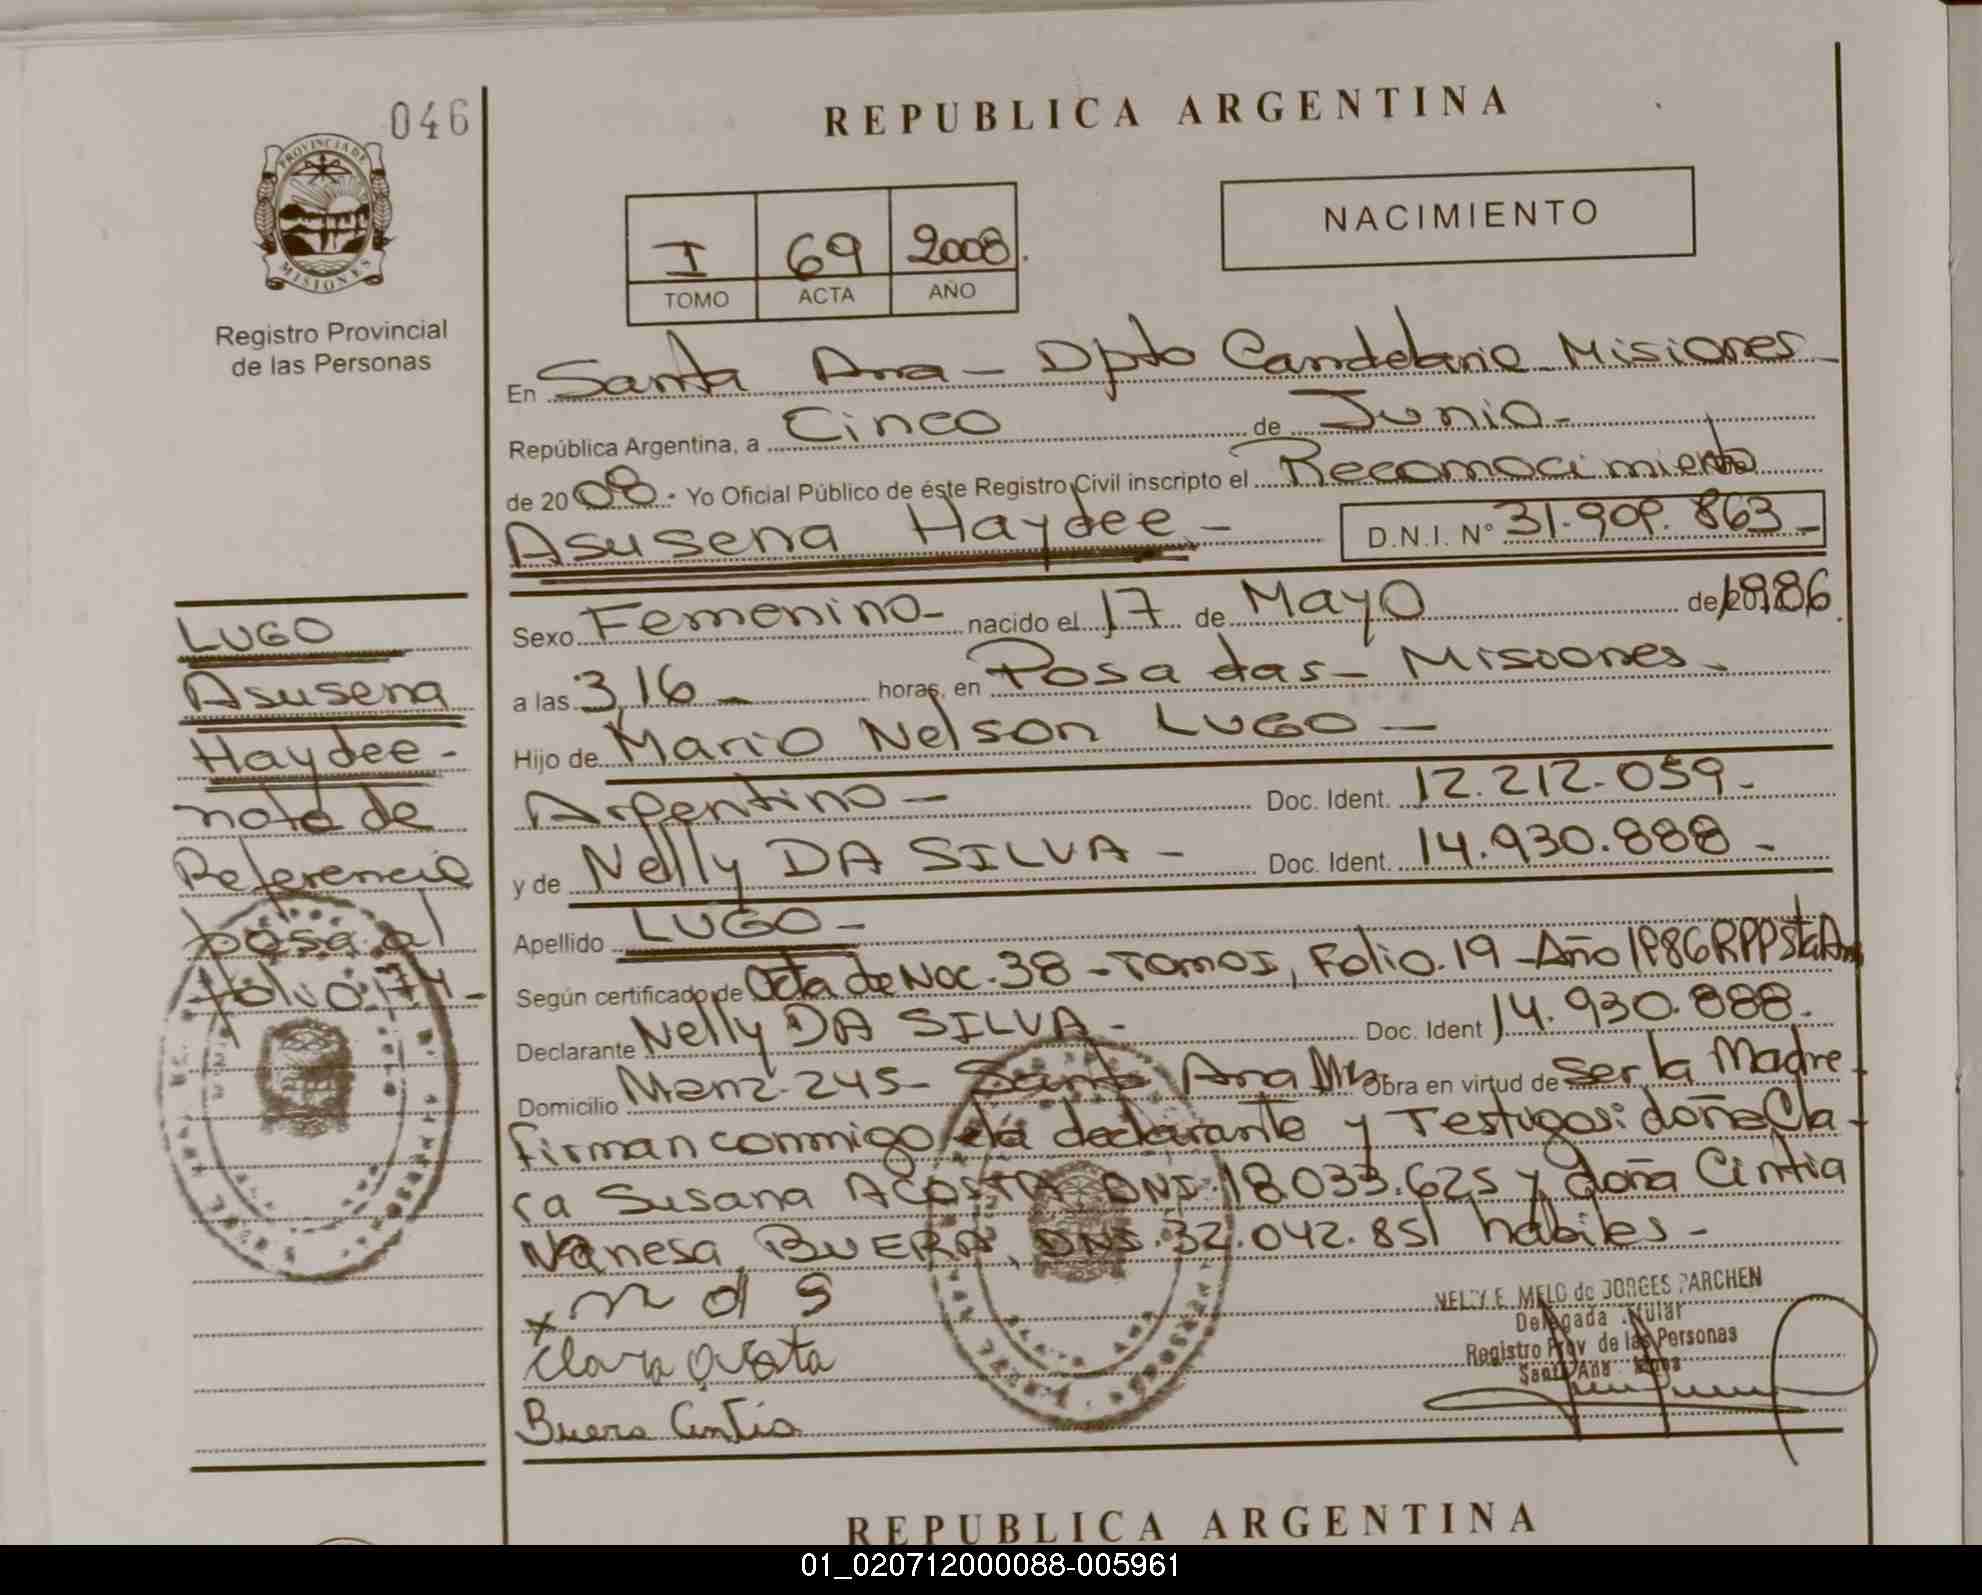 046
REPUBLICA ARGENTINA
PROVINCIA DE
MISIONES
Registro Provincial
de las Personas
I 69 2008.
TOMO ACTA AÑO
NACIMIENTO
En Santa Ana - Dpto Candelaria Misiones
República Argentina, a Cinco de Junio -
de 20 08 . Yo Oficial Público de éste Registro Civil inscripto el Reconocimiento
Asusena Haydee - D.N.I. N° 31.909.863 -
Sexo Femenino - nacido el 17 de Mayo de 1986.
a las 3,16 - horas, en Posadas - Misiones -
Hijo de Mario Nelson LUGO -
Argentino - Doc. Ident. 12.212.059 -
y de Nelly DA SILVA - Doc. Ident. 14.930.888 -
Apellido LUGO -
Según certificado de Acta de Nac. 38 - Tomo I, Folio. 19 - Año 1986 RPP Sta Ana
Declarante Nelly DA SILVA - Doc. Ident 14.930.888.
Domicilio Manz. 245 - Santa Ana Mnes Obra en virtud de ser la Madre -
firman conmigo la declarante y Testigos: doña Cla-
ra Susana ACOSTA DNI. 18.033.625 y doña Cintia
Vanesa BUERA, DNI. 32.042.851 habiles -
x n d s
Clara Acosta
Buera Cintia
NELLY E. MELO de BORGES PARCHEN
Delegada Titular
Registro Prov de las Personas
Santa Ana Mnes
LUGO
Asusena
Haydee -
nota de
Referencia
pasa al
folio 174 -
REPUBLICA ARGENTINA
01_020712000088-005961